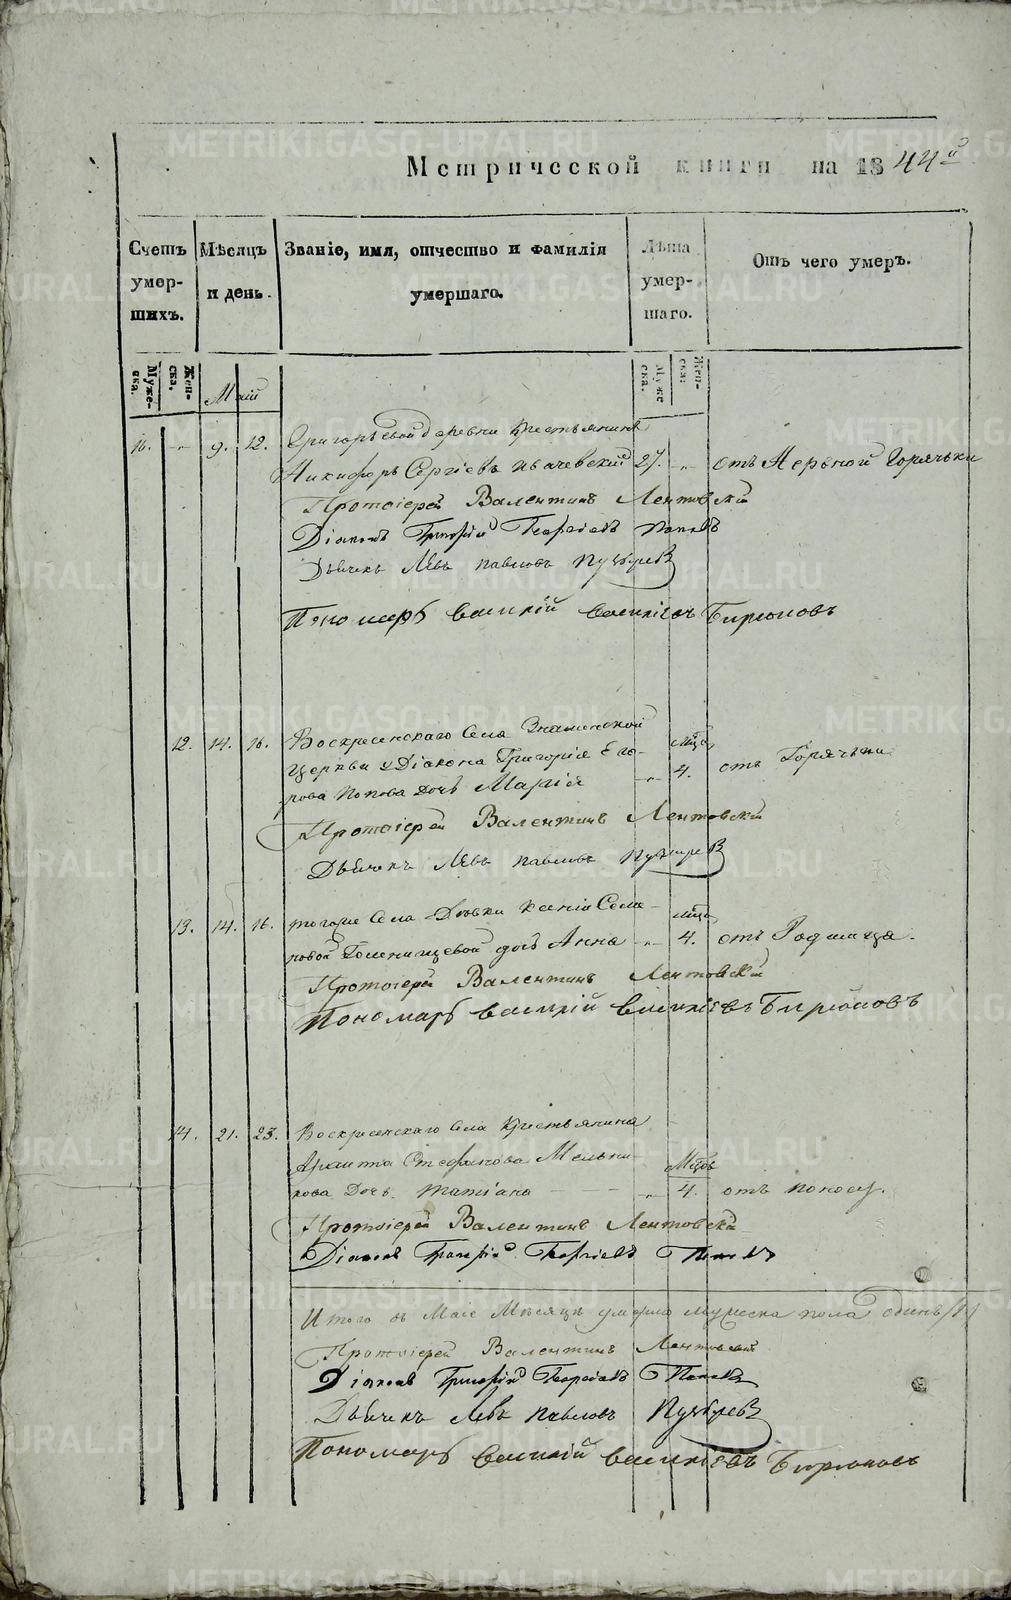 Метрической книги на 1844й
Счетъ умер-шихъ.
Мѣсяцъ и день.
Званіе, имя, отчество и фамилія умершаго.
Лѣта умер-шаго.
Отъ чего умеръ.
Муже-ска.
Жен-ска.
Муже ска.
Жен-ска.
Маій
9. 12. деревни Крестьянинъ
Никифоръ Сергіевъ 27. отъ Нервной Горячьки
Протоіерей Валентинъ Лентовскій
Діаконъ Григорій Георгіевъ Поповъ
Дьячекъ Левъ Павловъ
Пономарь Василій Василіевъ Бирюковъ
12. 14. 16. Воскресенскаго Села Знаменской мѣсц.
Церькви Діакона Григорія Его- 4. отъ Горячьки
рова Попова дочь Марія
Протоіерей Валентинъ Лентовскій
Дьячекъ Левъ Павловъ
13. 14. 16. тогоже Села Дѣвки Ксеніи Семе- мѣсц.
новой Голенищевой дочь Анна 4. отъ Родимца.
Протоіерей Валентинъ Лентовскій
Пономарь Василій Василіевъ Бирюковъ
14. 21. 23. Воскресенскаго Села Крестьянина
Стефанова Мельни- Мѣсцъ
кова Дочь Татіана 4. отъ поносу.
Протоіерей Валентинъ Лентовскій
Діаконъ Григорій Георгіевъ Поповъ
Итого въ Маіе Мѣсяцѣ умерло мужеска пола одинъ (1)
Протоіерей Валентинъ Лентовскій
Діаконъ Григорій Георгіевъ Поповъ
Дьячекъ Левъ Павловъ
Пономарь Василій Василіевъ Бирюковъ
METRIKI.GASO-URAL.RU